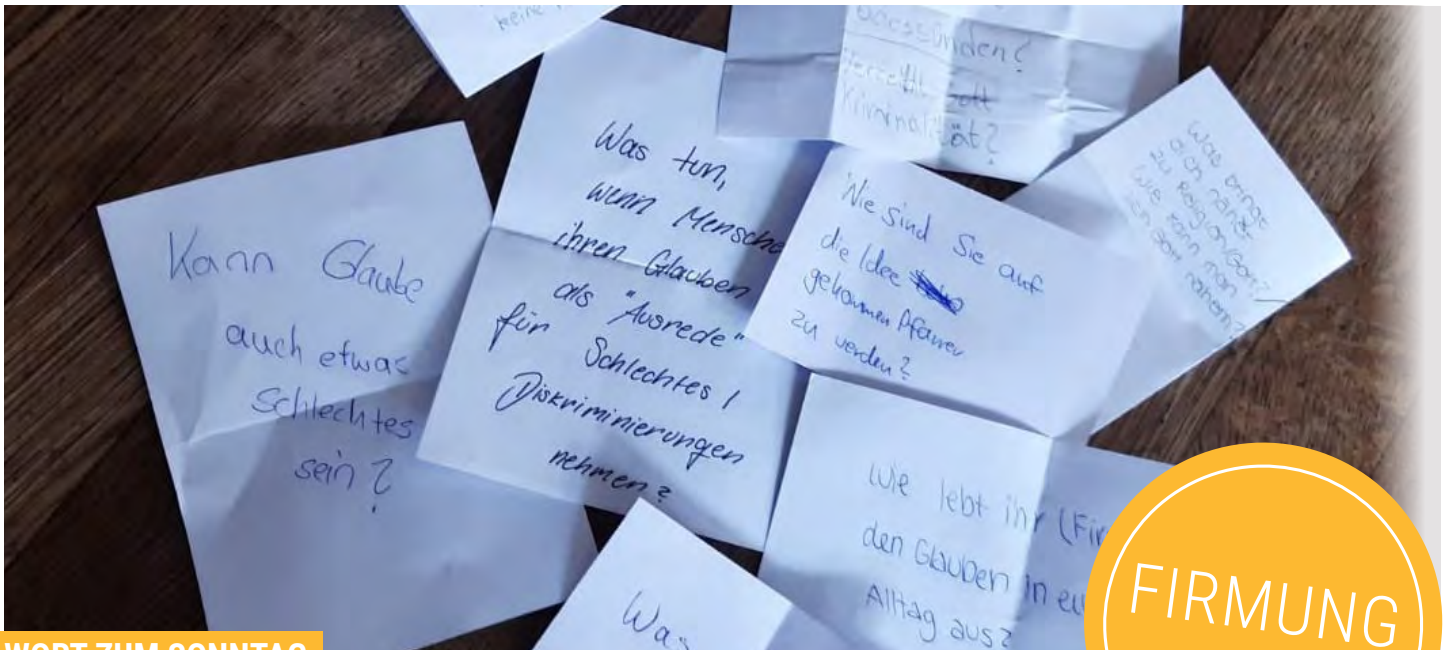 keine
Todsünden?
Verzeiht Gott
Kriminalität?
Was tun,
wenn Mensche
ihren Glauben
als "Ausrede"
für Schlechtes /
Diskriminierungen
nehmen?
Kann Glaube
auch etwas
Schlechtes
sein?
Wie sind Sie auf
die Idee
gekommen Pfarrer
zu werden?
Was bringt
näher
zu Religion/Gott?
Wie kann man
Gott nähern?
wie lebt ihr (Fir
den Glauben in eu
Alltag aus?
Was
FIRMUNG
WORT ZUM SONNTAG